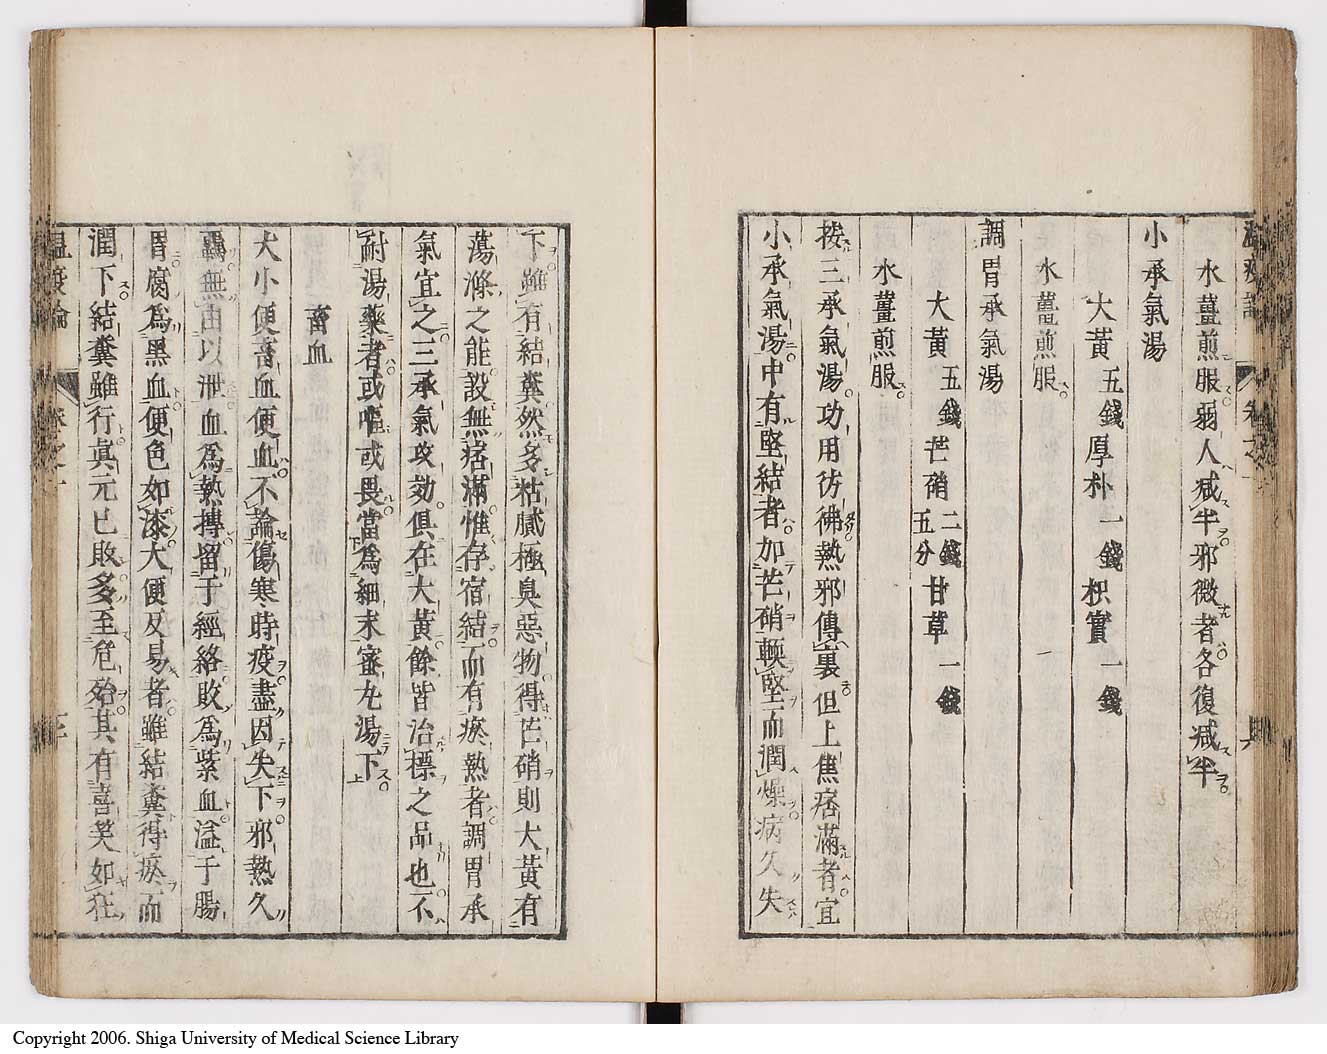 溫疫論 卷之一 六
水薑煎服弱人減半邪微者各復減半
小承氣湯
大黃五錢厚朴一錢枳實一錢
水薑煎服
調胃承氣湯
大黃五錢芒硝二錢五分甘草一錢
水薑煎服
按三承氣湯功用彷彿熱邪傳裏但上焦痞滿者宜
小承氣湯中有堅結者加芒硝輭堅而潤燥病久失
下雖有結糞然多粘膩極臭惡物得芒硝則大黃有
蕩滌之能設無痞滿惟存宿結而有瘀熱者調胃承
氣宜之三承氣攻効俱在大黃餘皆治標之品也不
耐湯藥者或嘔或畏當爲細末蜜丸湯下
畜血
大小便畜血便血不論傷寒時疫盡因失下邪熱久
羈無由以泄血爲熱搏留于經絡敗爲紫血溢于腸
胃腐爲黑血便色如漆大便反易者雖結糞得瘀而
潤下結糞雖行眞元已敗多至危殆其有喜笑如狂
溫疫論 卷之一
Copyright 2006. Shiga University of Medical Science Library